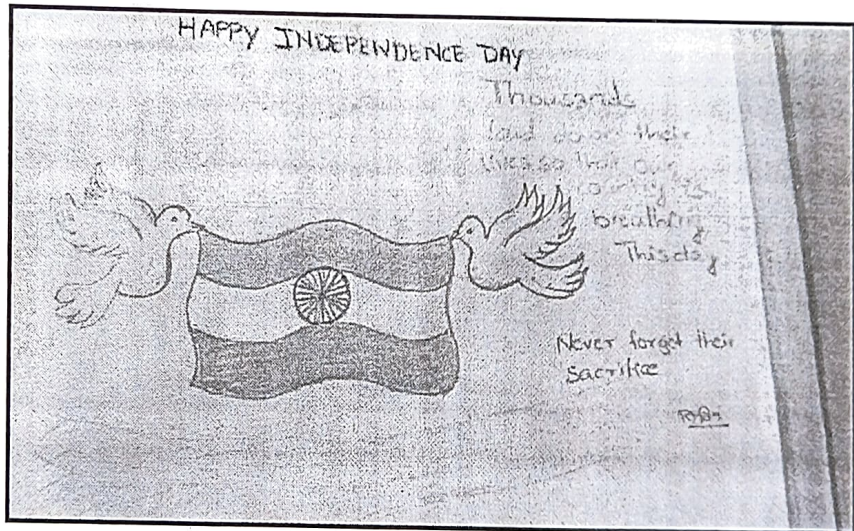 HAPPY INDEPENDENCE DAY
Thousands
laid down their
lives so that our
country is
breathing
This day
Never forget their
sacrifice